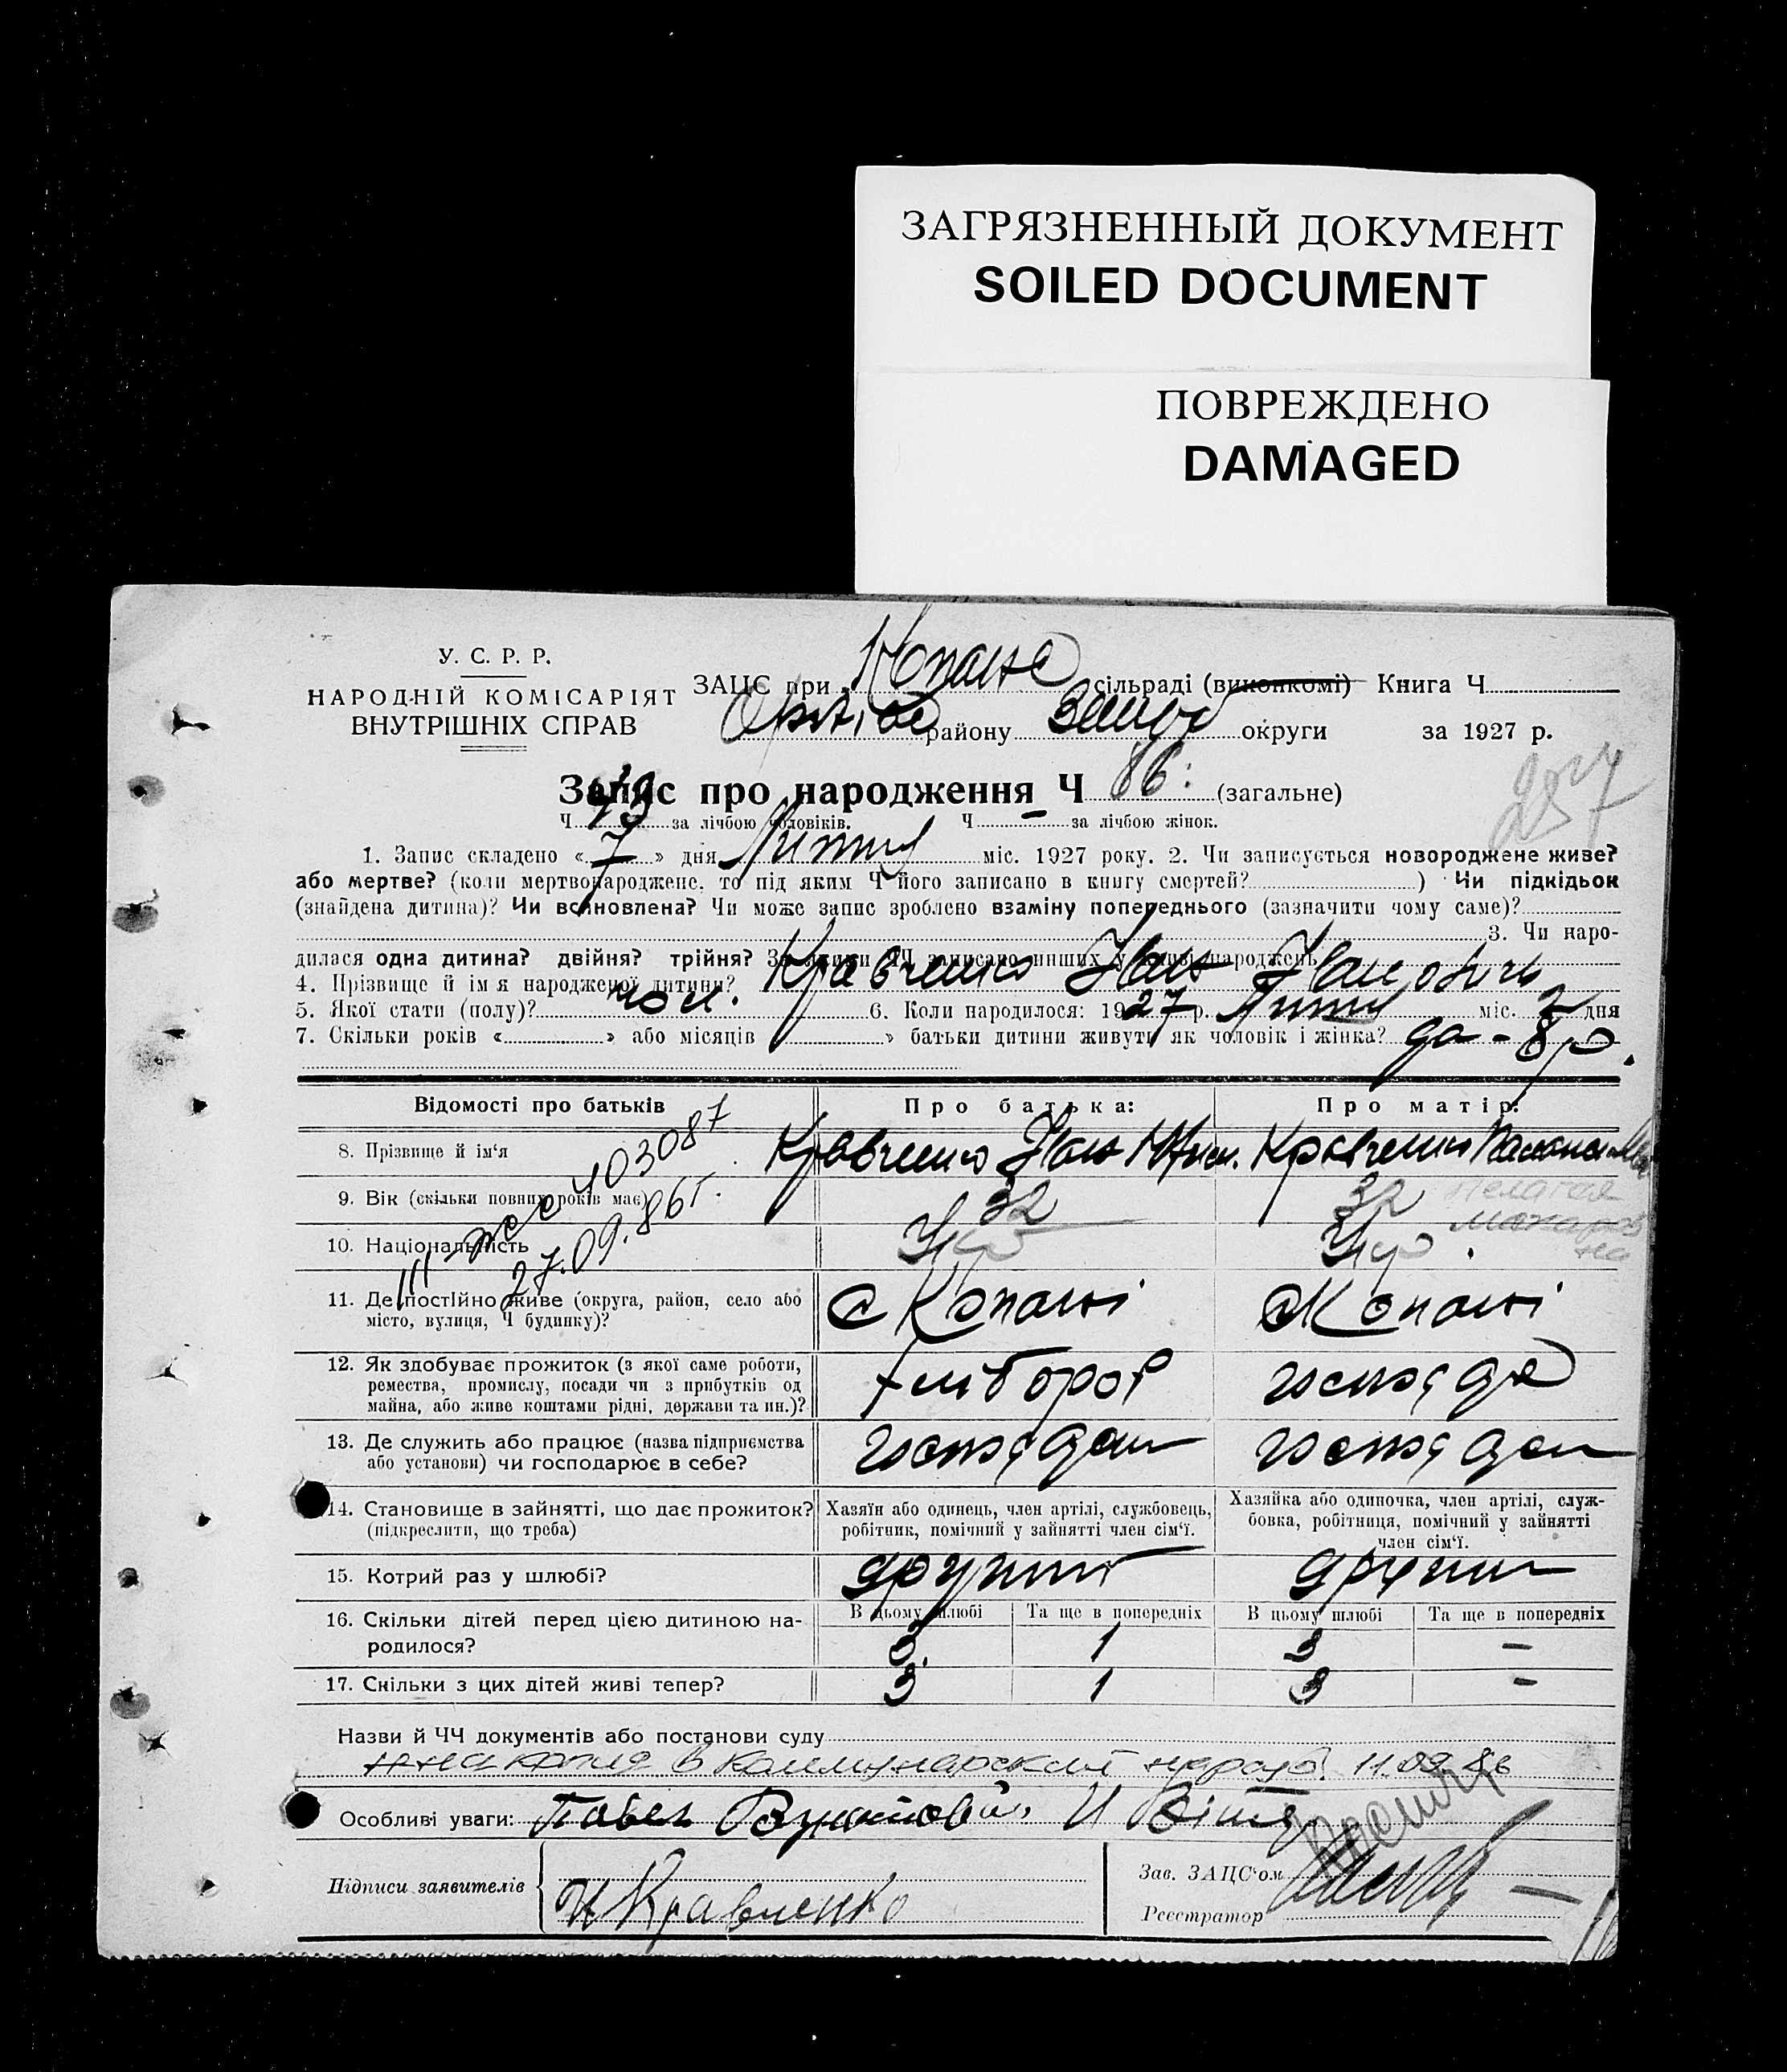 ЗАГРЯЗНЕННЫЙ ДОКУМЕНТ
SOILED DOCUMENT
ПОВРЕЖДЕНО
DAMAGED
У. С. Р. Р.
НАРОДНІЙ КОМІСАРІЯТ
ВНУТРІШНІХ СПРАВ
ЗАЦС при Копане сільраді (виконкомі) Книга Ч
району округи за 1927 р.
Запис про народження Ч 86 (загальне)
Ч 49 за лічбою чоловіків. Ч — за лічбою жінок.
257
1. Запис складено « 7 » дня Липня міс. 1927 року. 2. Чи записується новороджене живе?
або мертве? (коли мертвонароджене, то під яким Ч його записано в книгу смертей? ) Чи підкідьок
(знайдена дитина)? Чи всиновлена? Чи може запис зроблено взаміну попереднього (зазначити чому саме)?
3. Чи наро-
дилася одна дитина? двійня? трійня? За якими ЧЧ записано инших у книзі народжень
4. Прізвище й ім'я народженої дитини? Кравченко Іван Іванович
5. Якої стати (полу)? чол. 6. Коли народилося: 1927 р. Липня міс. 2 дня
7. Скільки років « » або місяців » батьки дитини живуть як чоловік і жінка? да - 8 р.
Відомості про батьків Про батька: Про матір:
8. Прізвище й ім'я Кравченко Іван Кравченко
403087
9. Вік (скільки повних років має) 32 32
Пелагея
Макаровна
27.09.86г.
10. Національність Укр Укр.
11. Де постійно живе (округа, район, село або місто, вулиця, Ч будинку)? с Копані с Копані
12. Як здобуває прожиток (з якої саме роботи, ремества, промислу, посади чи з прибутків од майна, або живе коштами рідні, держави та ин.)? хлібороб
13. Де служить або працює (назва підприємства або установи) чи господарює в себе?
14. Становище в зайнятті, що дає прожиток? (підкреслити, що треба)
Хазяїн або одинець, член артілі, службовець, робітник, помічний у зайнятті член сім'ї.
Хазяйка або одиночка, член артілі, служ-
бовка, робітниця, помічний у зайнятті
член сім'ї.
15. Котрий раз у шлюбі? другий другий
16. Скільки дітей перед цією дитиною на-
родилося?
В цьому шлюбі Та ще в попередніх В цьому шлюбі Та ще в попередніх
3 1 3 —
17. Скільки з цих дітей живі тепер? 3 1 3 —
Назви й ЧЧ документів або постанови суду
копия в Коммунарский нарсуд. 11.09.86
Особливі уваги:
Підписи заявителів И Кравченко
Зав. ЗАЦС'ом
Реєстратор